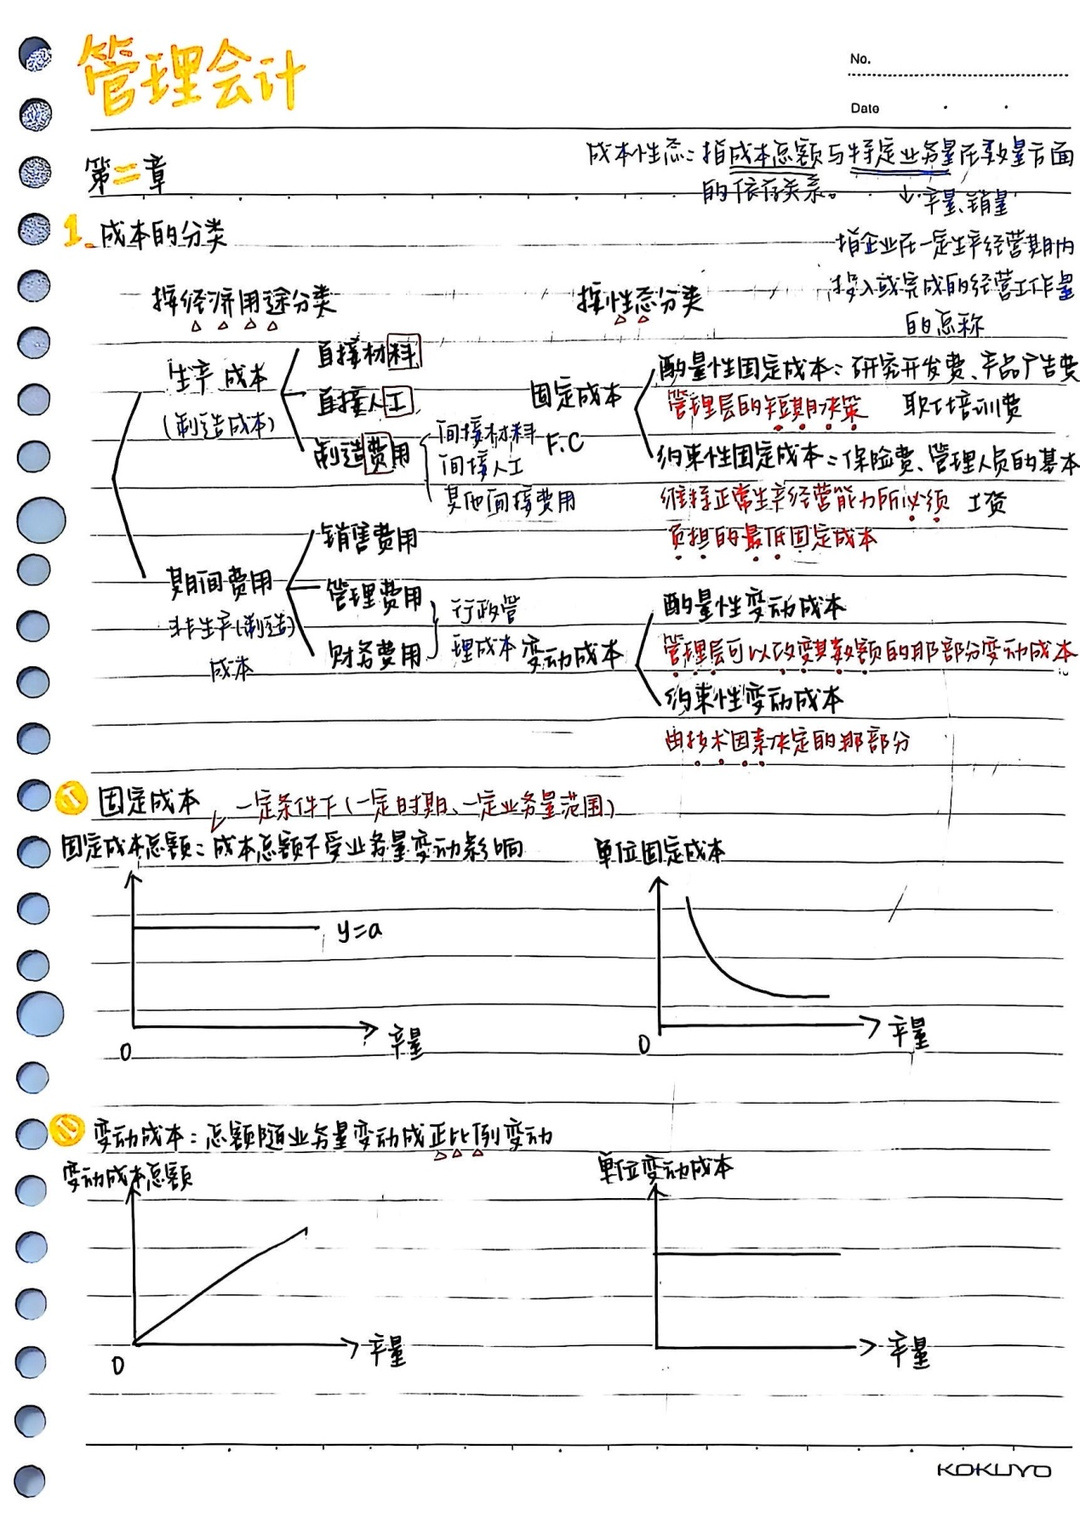 管理会计
No.
Date
第二章
成本性态：指成本总额与特定业务量在数量方面
的依存关系。
↓产量、销量
指企业在一定生产经营期内
投入或完成的经营工作量
的总称
1. 成本的分类
按经济用途分类
生产成本
(制造成本)
直接材料
直接人工
制造费用
间接材料
间接人工
其他间接费用
期间费用
非生产(制造)
成本
销售费用
管理费用
财务费用
行政管
理成本
按性态分类
固定成本
F.C
酌量性固定成本：研究开发费、产品广告费
管理层的短期决策 职工培训费
约束性固定成本：保险费、管理人员的基本
维持正常生产经营能力所必须 工资
负担的最低固定成本
变动成本
酌量性变动成本
管理层可以改变其数额的那部分变动成本
约束性变动成本
由技术因素决定的那部分
① 固定成本 一定条件下(一定时期、一定业务量范围)
固定成本总额：成本总额不受业务量变动影响
y=a
0
产量
单位固定成本
0
产量
② 变动成本：总额随业务量变动成正比例变动
变动成本总额
0
产量
单位变动成本
产量
KOKUYO